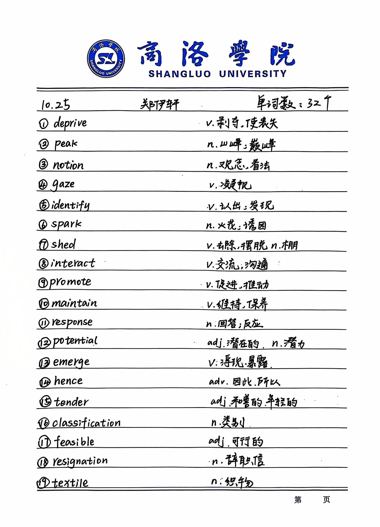 商洛学院
SHANGLUO UNIVERSITY
10.25 单词数：32个
① deprive v.剥夺，使丧失
② peak n.山峰；巅峰
③ notion n.观念，看法
④ gaze v.凝视
⑤ identify v.认出；发现
⑥ spark n.火花；诱因
⑦ shed v.去除，摆脱 n.棚
⑧ interact v.交流；沟通
⑨ promote v.促进，推动
⑩ maintain v.维持，保养
⑪ response n.回答；反应
⑫ potential adj.潜在的，n.潜力
⑬ emerge v.浮现，暴露
⑭ hence adv.因此，所以
⑮ tender adj.和善的，年轻的
⑯ classification n.类别
⑰ feasible adj.可行的
⑱ resignation n.辞职信
⑲ textile n.织物
第 页